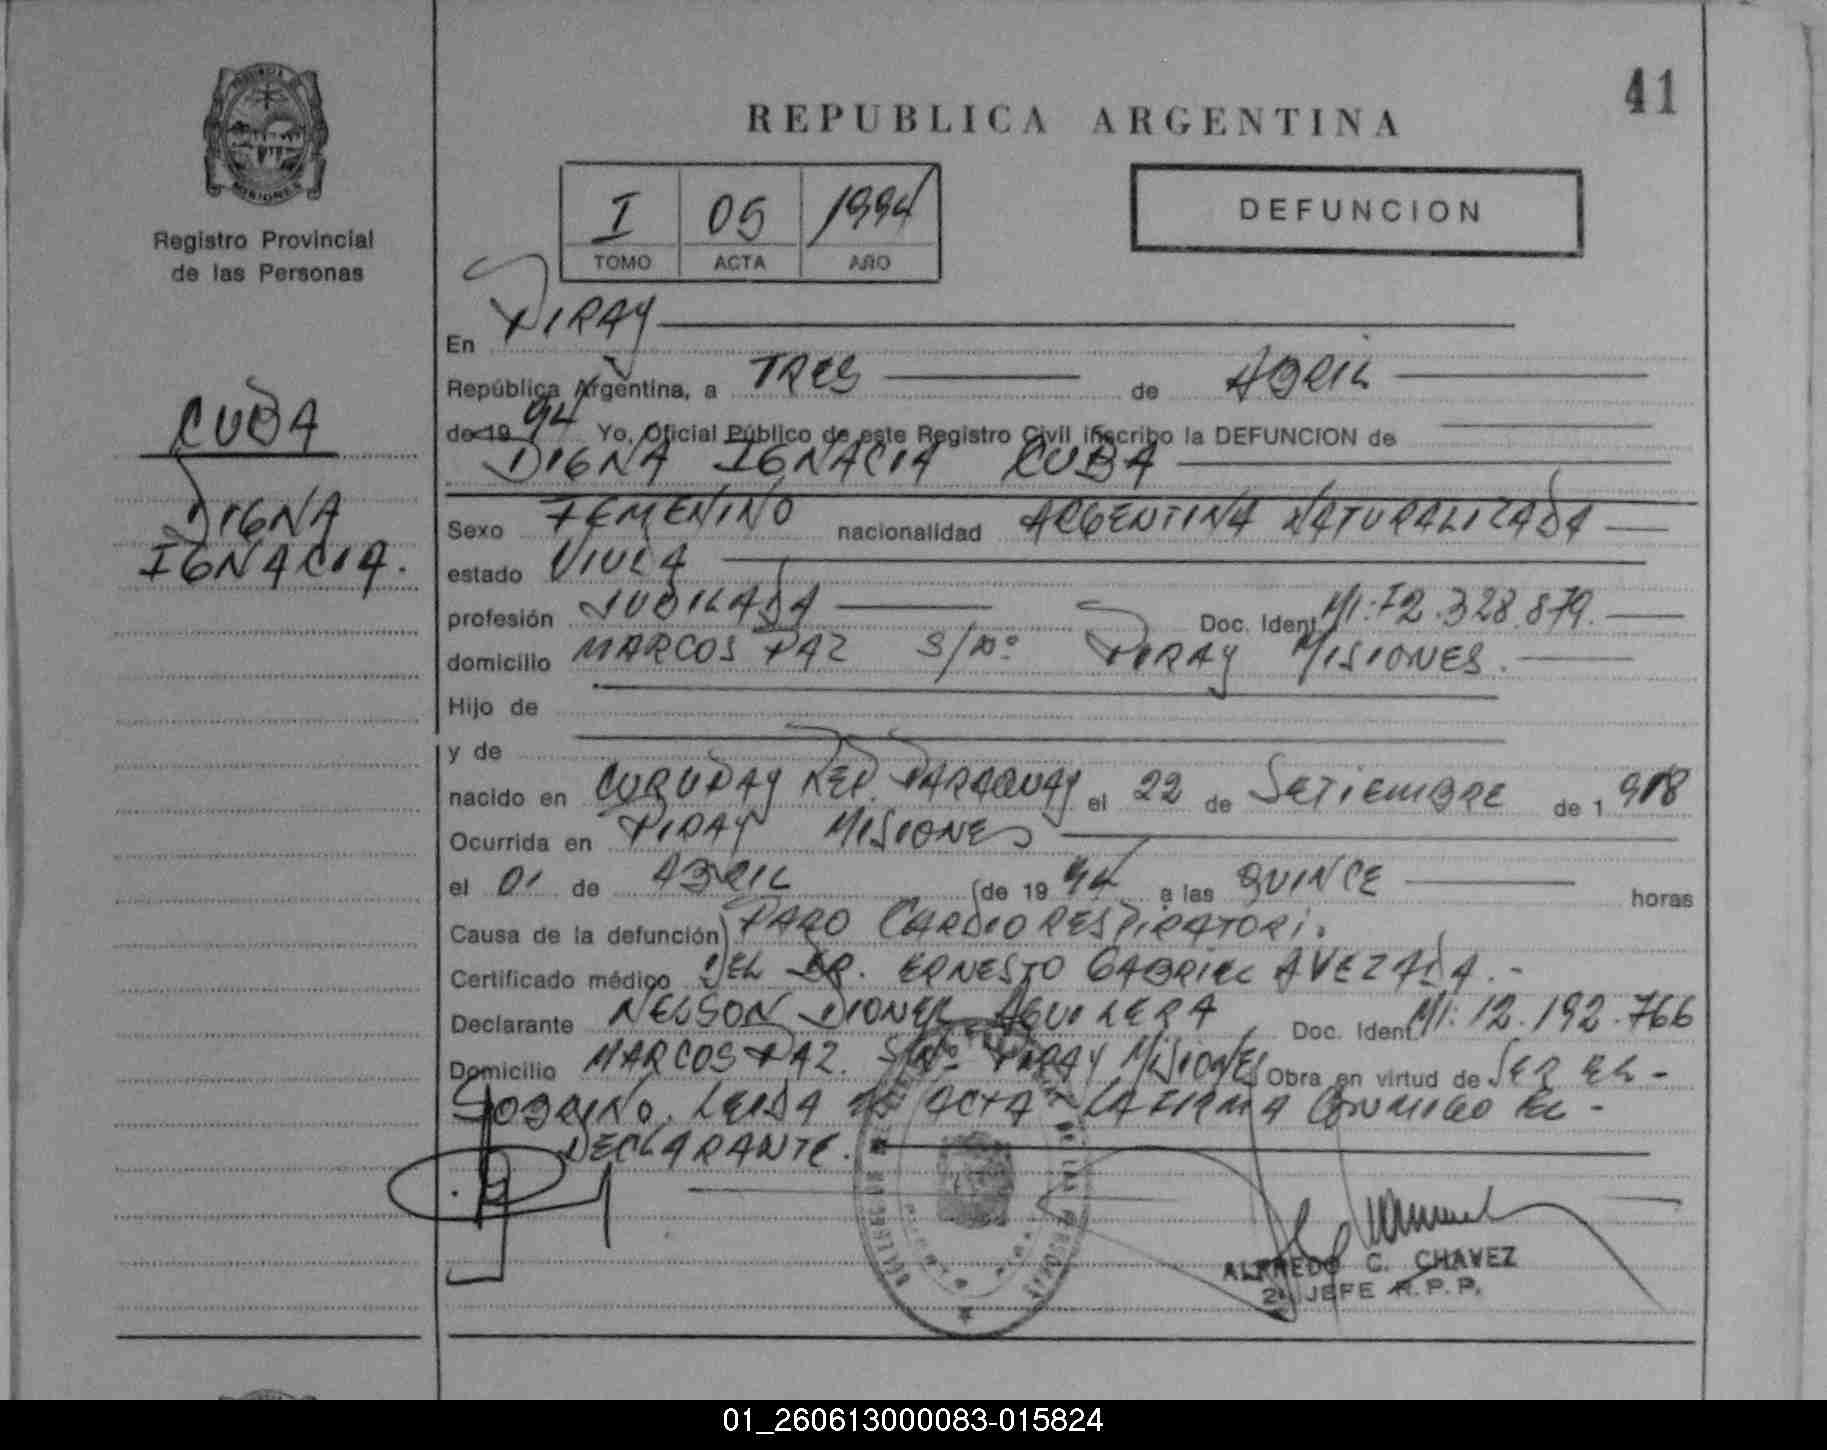 41
REPUBLICA ARGENTINA
PROVINCIA DE
MISIONES
Registro Provincial
de las Personas
I 05 1994
TOMO ACTA AÑO
DEFUNCION
CUBA
DIGNA
IGNACIA.
En PIRAY
República Argentina, a TRES de ABRIL
de 19 94 Yo, Oficial Público de este Registro Civil inscribo la DEFUNCION de
DIGNA IGNACIA CUBA
Sexo FEMENINO nacionalidad ARGENTINA NATURALIZADA
estado VIUDA
profesión JUBILADA Doc. Ident. MI: 12.328.879.
domicilio MARCOS PAZ S/Nº PIRAY MISIONES.
Hijo de
y de
nacido en CURUPAY REP. PARAGUAY el 22 de SETIEMBRE de 1 918
Ocurrida en PIRAY MISIONES
el 01 de ABRIL de 19 94 a las QUINCE horas
Causa de la defunción PARO CARDIO RESPIRATORI.
Certificado médico DEL DR. ERNESTO GABRIEL AVEZADA.-
Declarante NELSON DIONEL AGUILERA Doc. Ident. MI: 12.192.766
Domicilio MARCOS PAZ. S/Nº PIRAY MISIONES Obra en virtud de SER EL-
SOBRINO. LEIDA EL ACTA LA FIRMA CONMIGO EL-
DECLARANTE.
DE LAS PERSONAS
ALFREDO C. CHAVEZ
2º JEFE R.P.P.
01_260613000083-015824